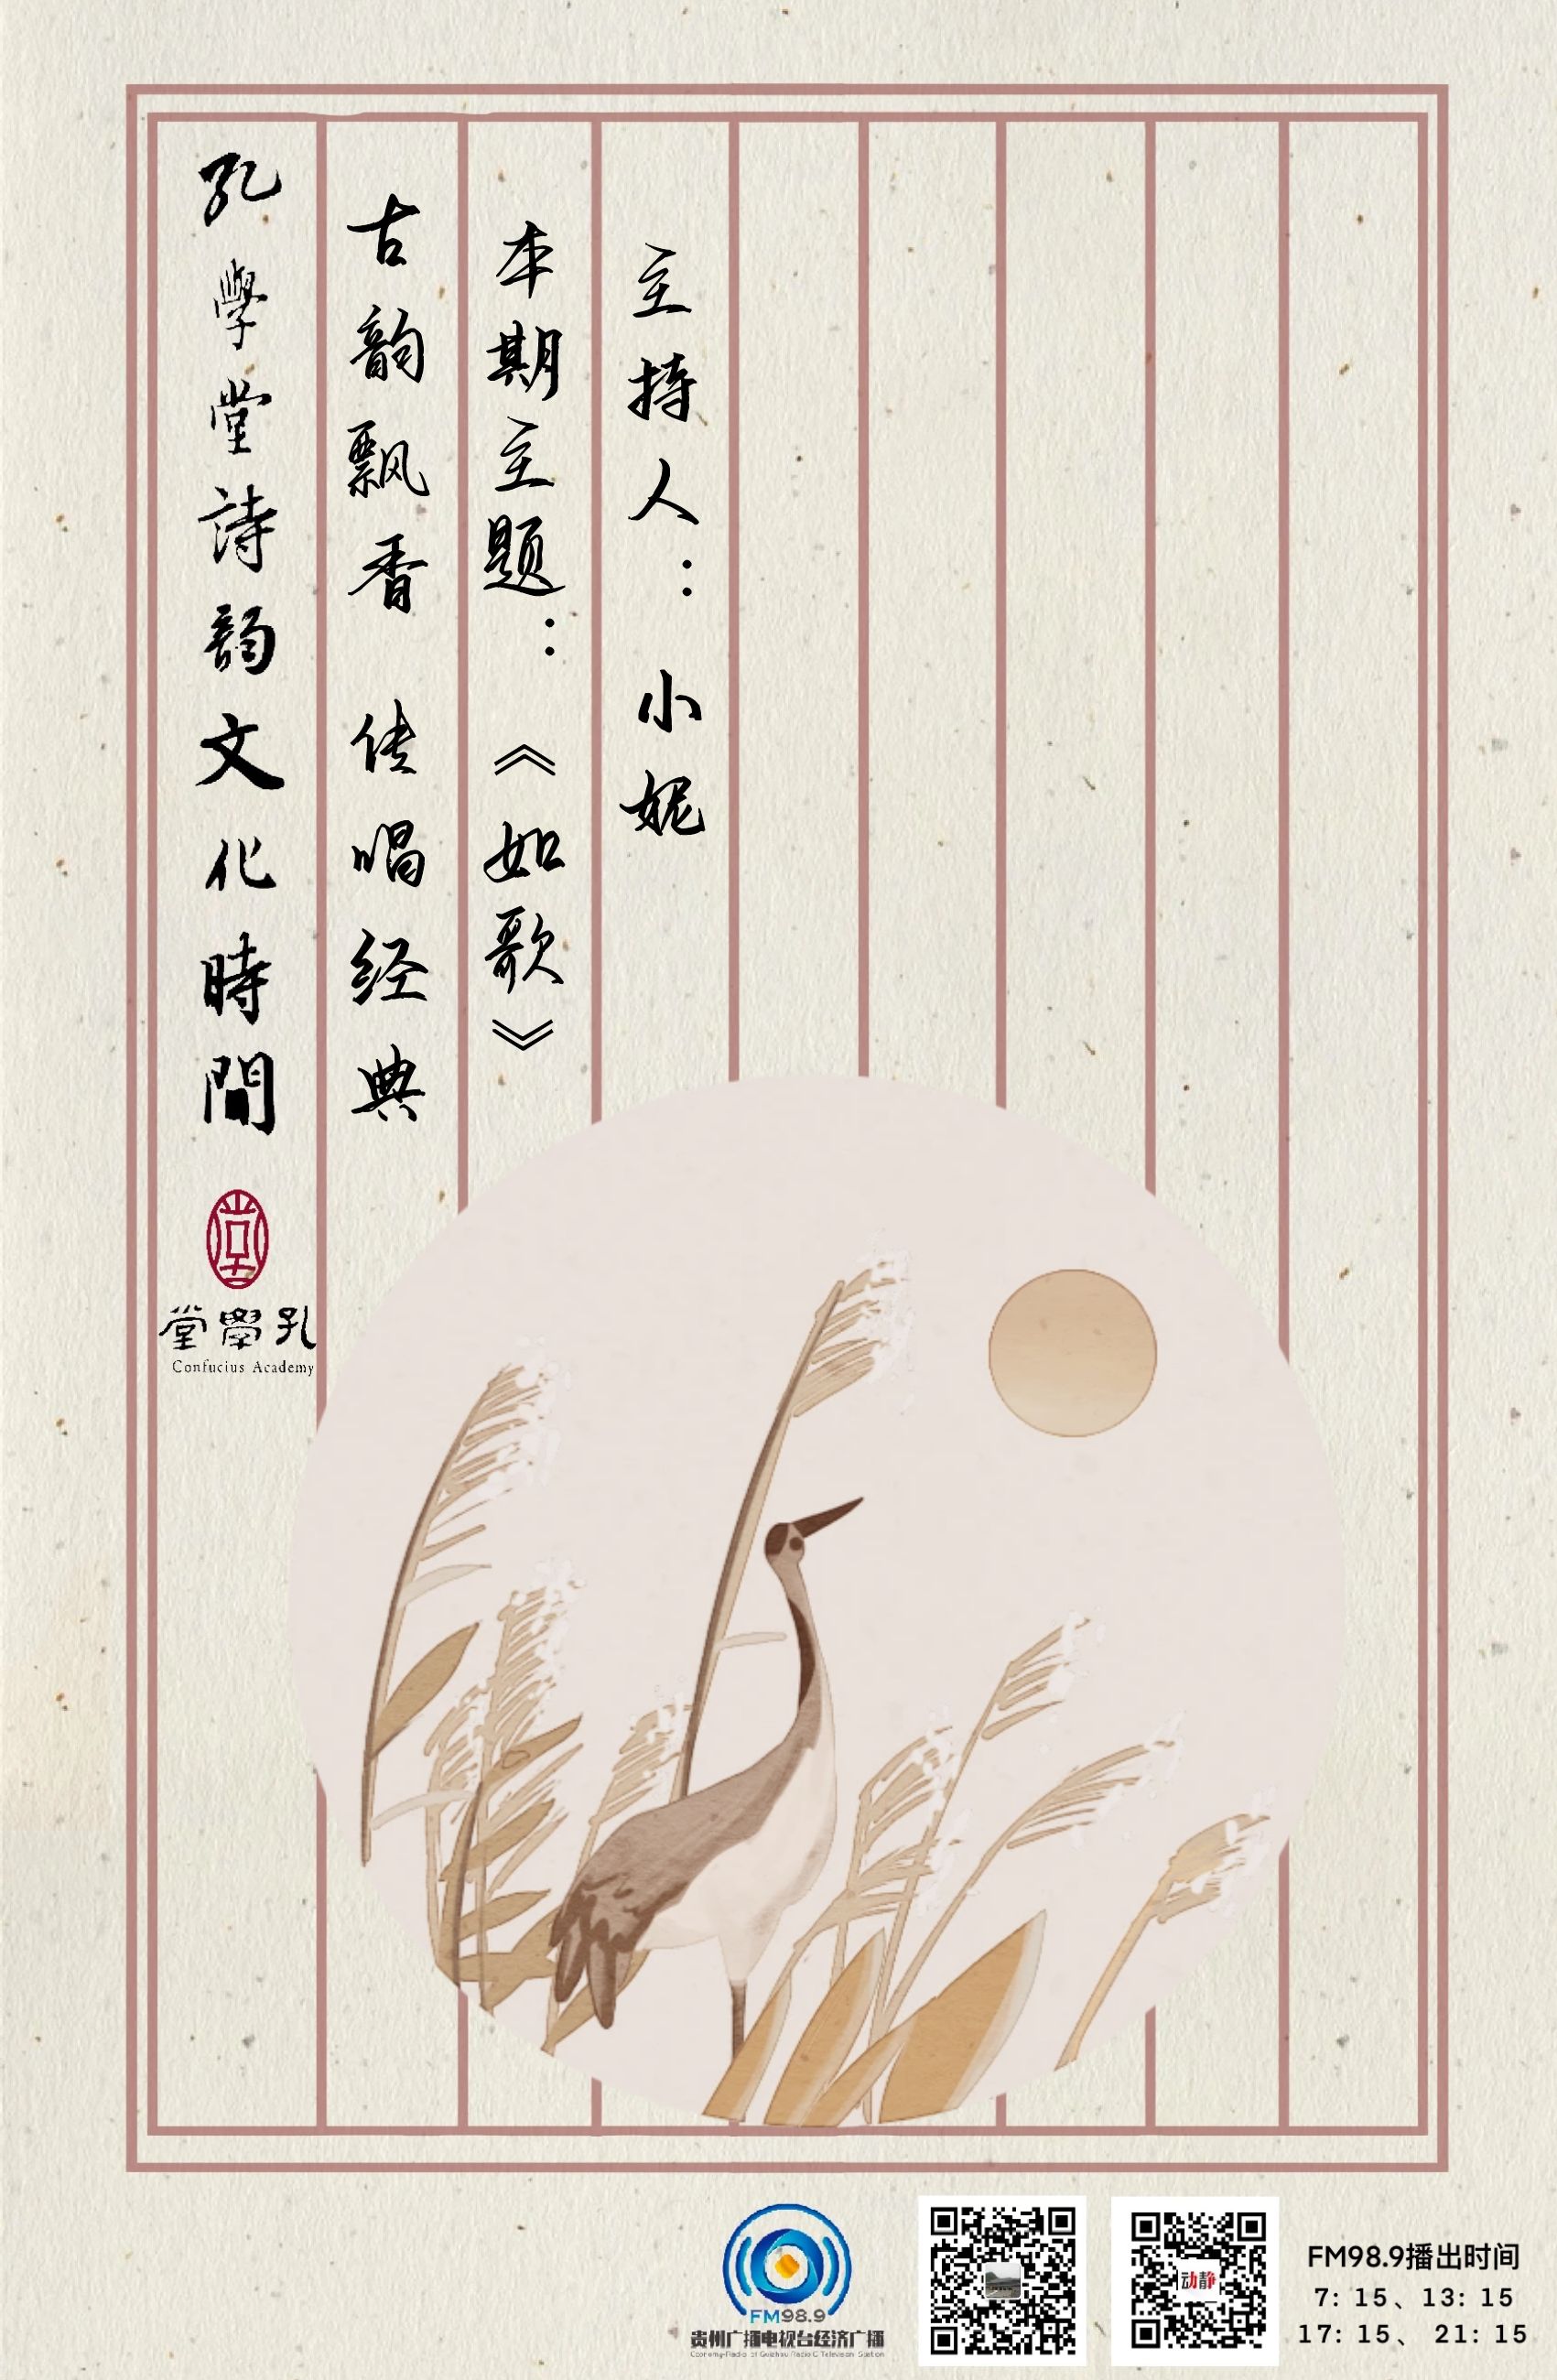 孔學堂詩韵文化時間
古韵飘香 传唱经典
本期主题：《如歌》
主持人：小妮
堂學孔
Confucius Academy
FM98.9
贵州广播电视台经济广播
Economy-Radio of Guizhou Radio & Television Station
动静
FM98.9播出时间
7: 15、13: 15
17: 15、 21: 15